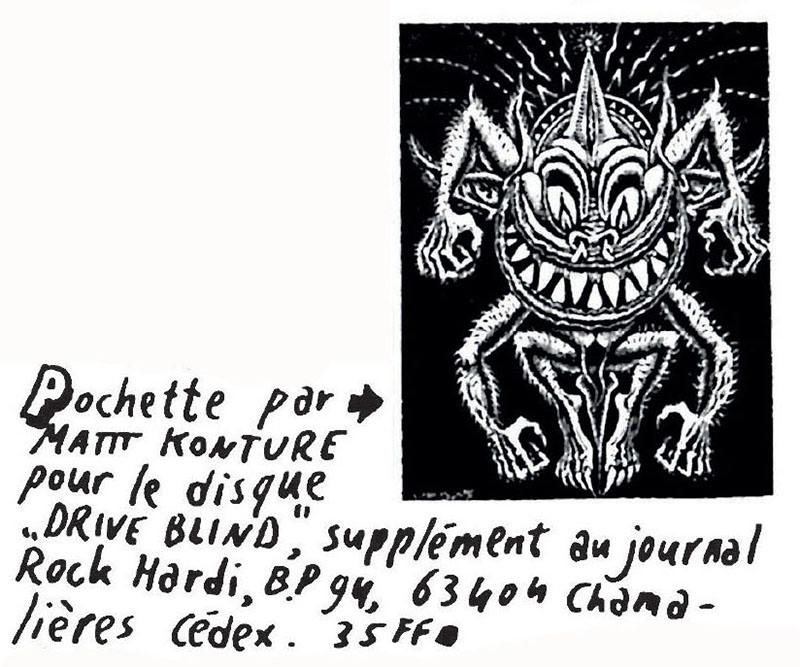 Pochette par
MATTT KONTURE
pour le disque
„DRIVE BLIND", supplément au journal
Rock Hardi, B.P 94, 63404 Chama-
lières Cédex. 35 FF